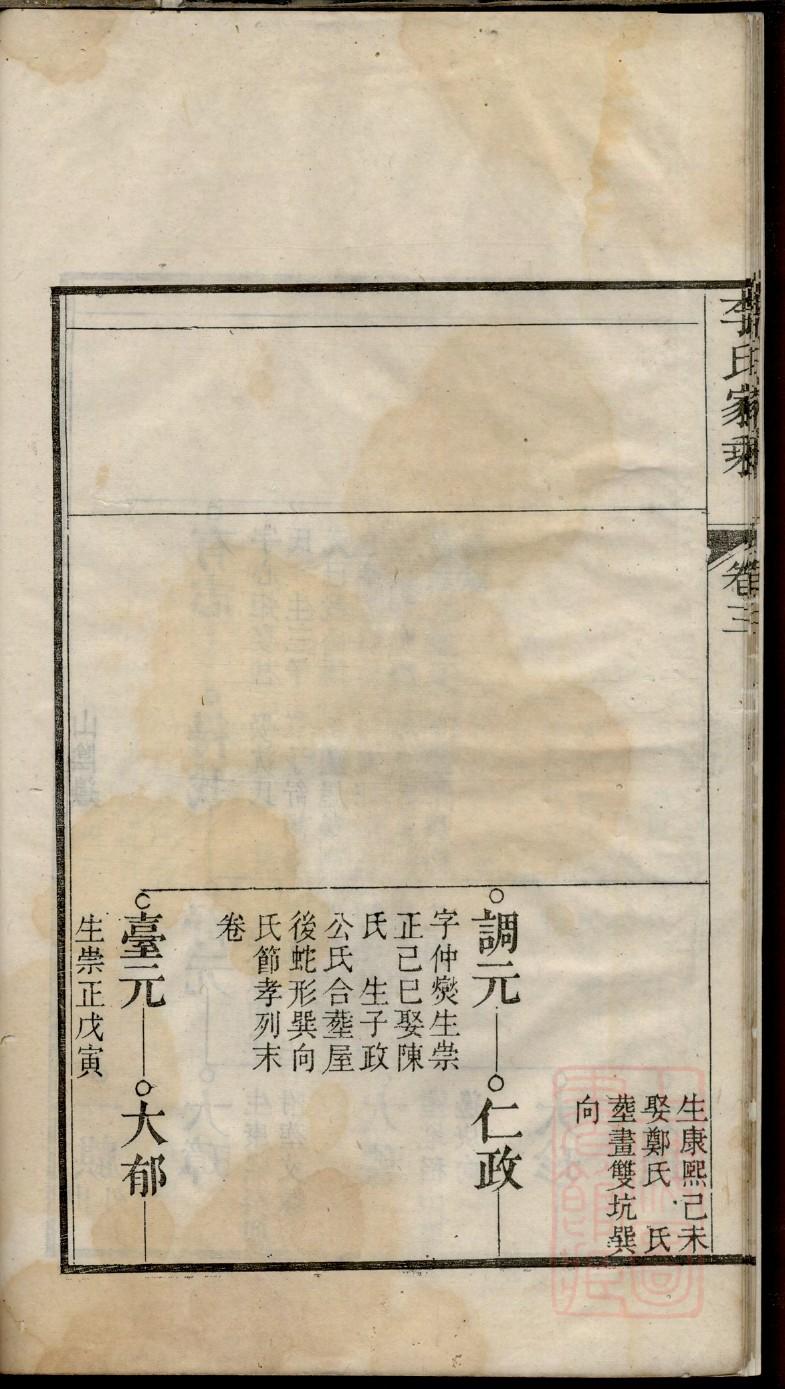 李氏家乘
卷三
生康熙己未
娶鄭氏　氏
塟畫雙坑巽
向
調元
仁政
字仲爕生崇
正己巳娶陳
氏　生子政
公氏合塟屋
後蛇形巽向
氏節孝列末
卷
臺元
大郁
生崇正戊寅